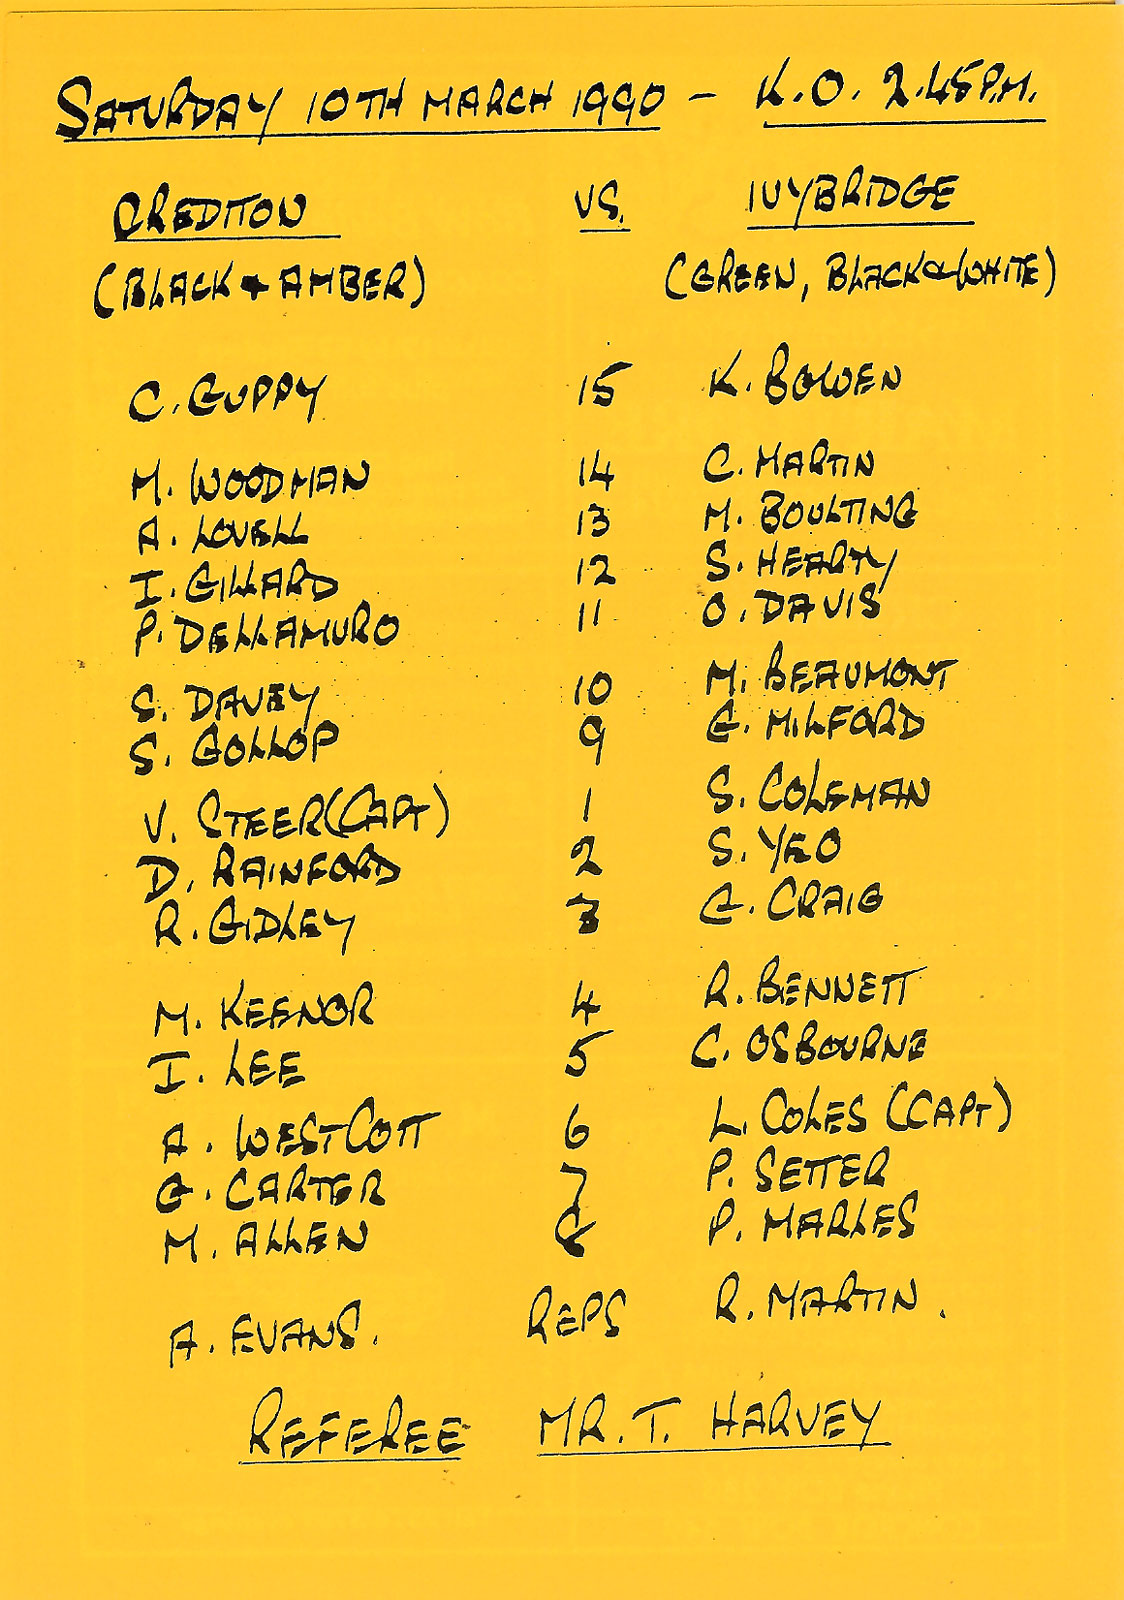 SATURDAY 10TH MARCH 1990 - K.O. 2.45 P.M.
CREDITON VS. IVYBRIDGE
(BLACK & AMBER) (GREEN, BLACK & WHITE)
C. GUPPY 15 K. BOWEN
M. WOODMAN 14 C. MARTIN
A. LOVELL 13 M. BOULTING
I. GILLARD 12 S. HEARTY
P. DELLAMURO 11 O. DAVIS
S. DAVEY 10 M. BEAUMONT
S. GOLLOP 9 G. MILFORD
V. STEER (CAPT) 1 S. COLEMAN
D. RAINFORD 2 S. YEO
R. GIDLEY 3 G. CRAIG
M. KEENOR 4 R. BENNETT
I. LEE 5 C. OSBOURNE
A. WESTCOTT 6 L. COLES (CAPT)
G. CARTER 7 P. SETTER
M. ALLEN 8 P. MARLES
A. EVANS. REPS R. MARTIN.
REFEREE MR. T. HARVEY